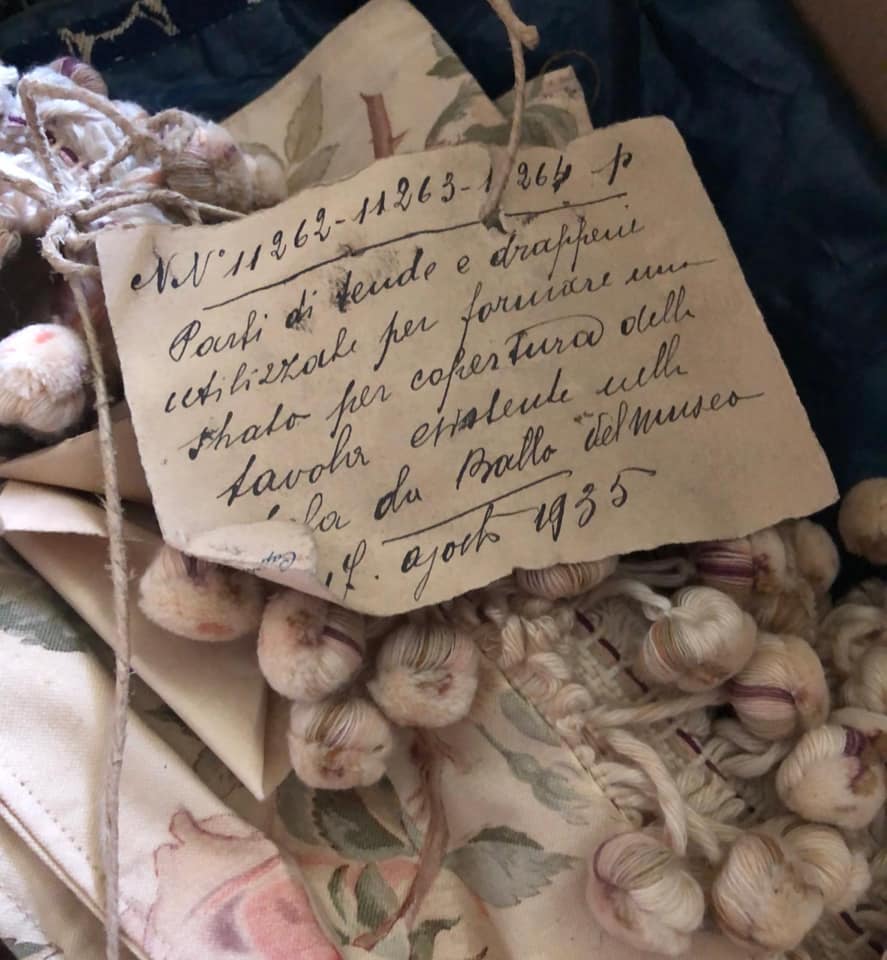 NN° 11262-11263-11264 p
Parti di tende e drapperie
utilizzate per formare uno
strato per copertura della
tavola esistente nella
da Ballo del museo
17. agosto 1935